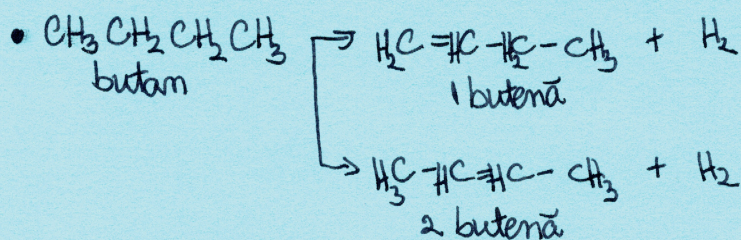 • CH₃CH₂CH₂CH₃ → H₂C=HC-H₂C-CH₃ + H₂
butan
1 butenă
→ H₃C-HC=HC-CH₃ + H₂
2 butenă